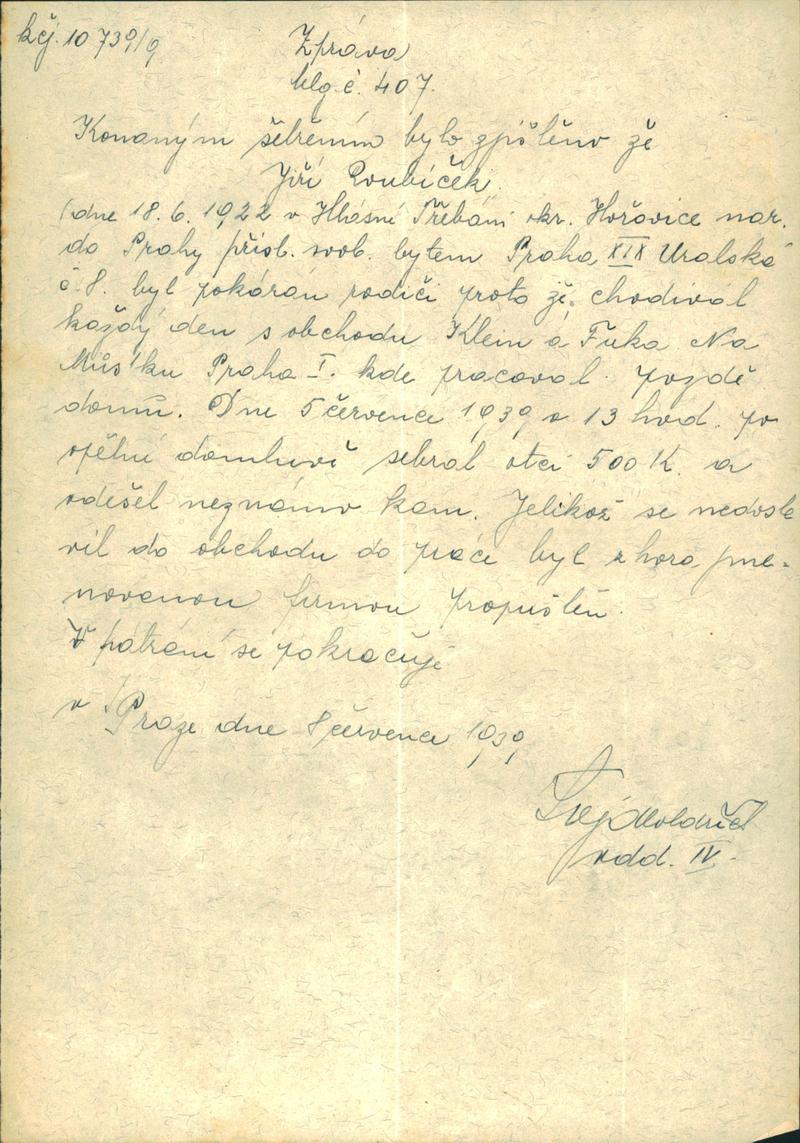 kčj. 10 739/9
Zpráva
blg č. 407.
Konaným šetřením bylo zjištěno že
Jiří Roubíček.
(dne 18. 6. 1922 v Hlásné Třebáni okr. Hořovice nar.
do Prahy přísl. svob. bytem Praha XIX Uralská
č 8. byl pokárán rodiči proto že, chodíval
každý den s obchodu Klein a Fuka Na
Můstku Praha I. kde pracoval. pozdě
domů. Dne 5 července 1939 o 13 hod. po
opětné domluvě sebral otci 500 K. a
odešel neznámo kam. Jelikož se nedosta
vil do obchodu do práce byl zhora jme-
novanou firmou propuštěn.
V pátrání se pokračuje
v Praze dne 8 července 1939
odd. IV.